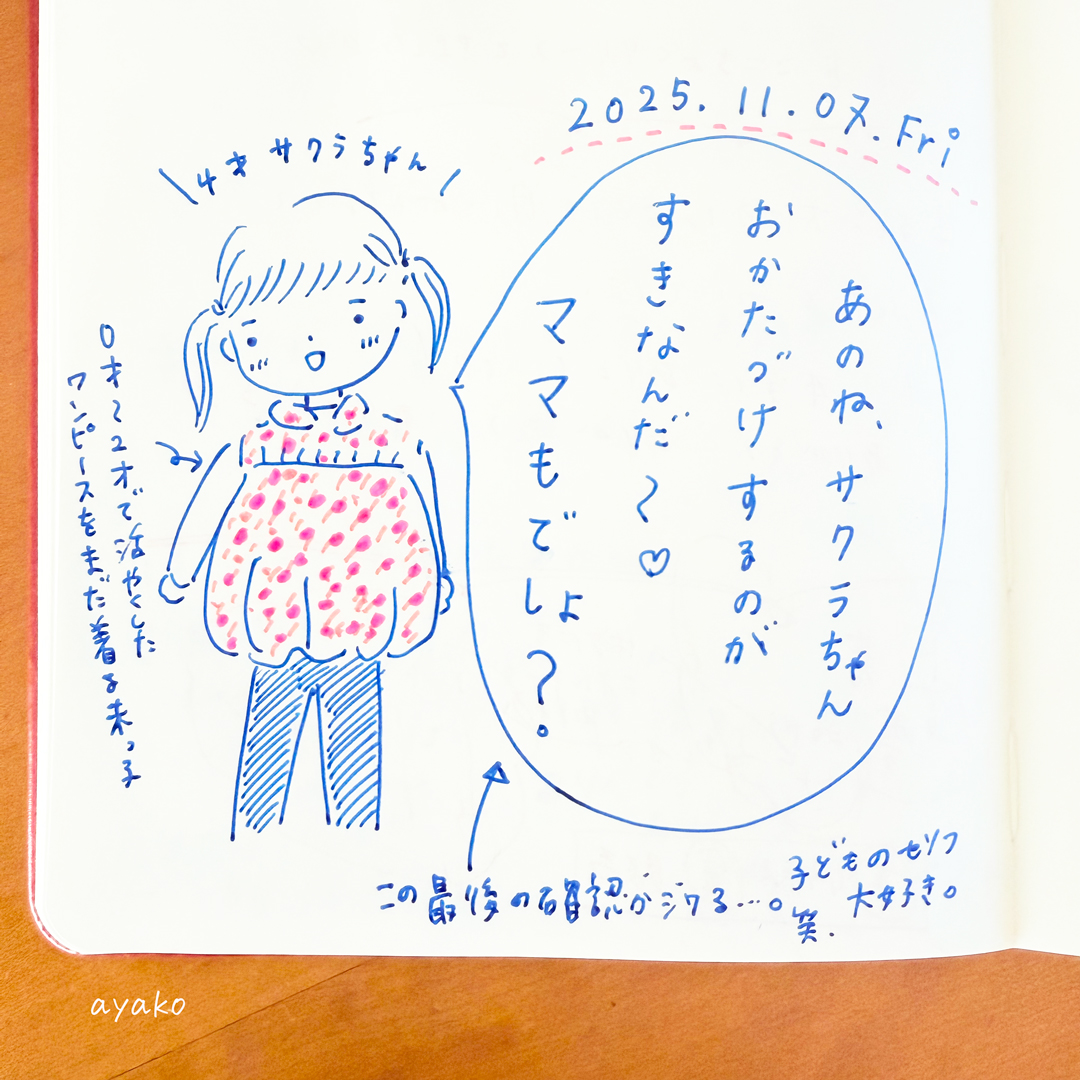 2025.11.07.Fri
4才サクラちゃん
あのね、サクラちゃん
おかたづけするのが
すきなんだ〜♡
ママもでしょ？。
0才〜2才で活やくした
ワンピースをまだ着る末っ子
この最後の確認がジワる…。
子どものセリフ
大好き。
笑.
ayako